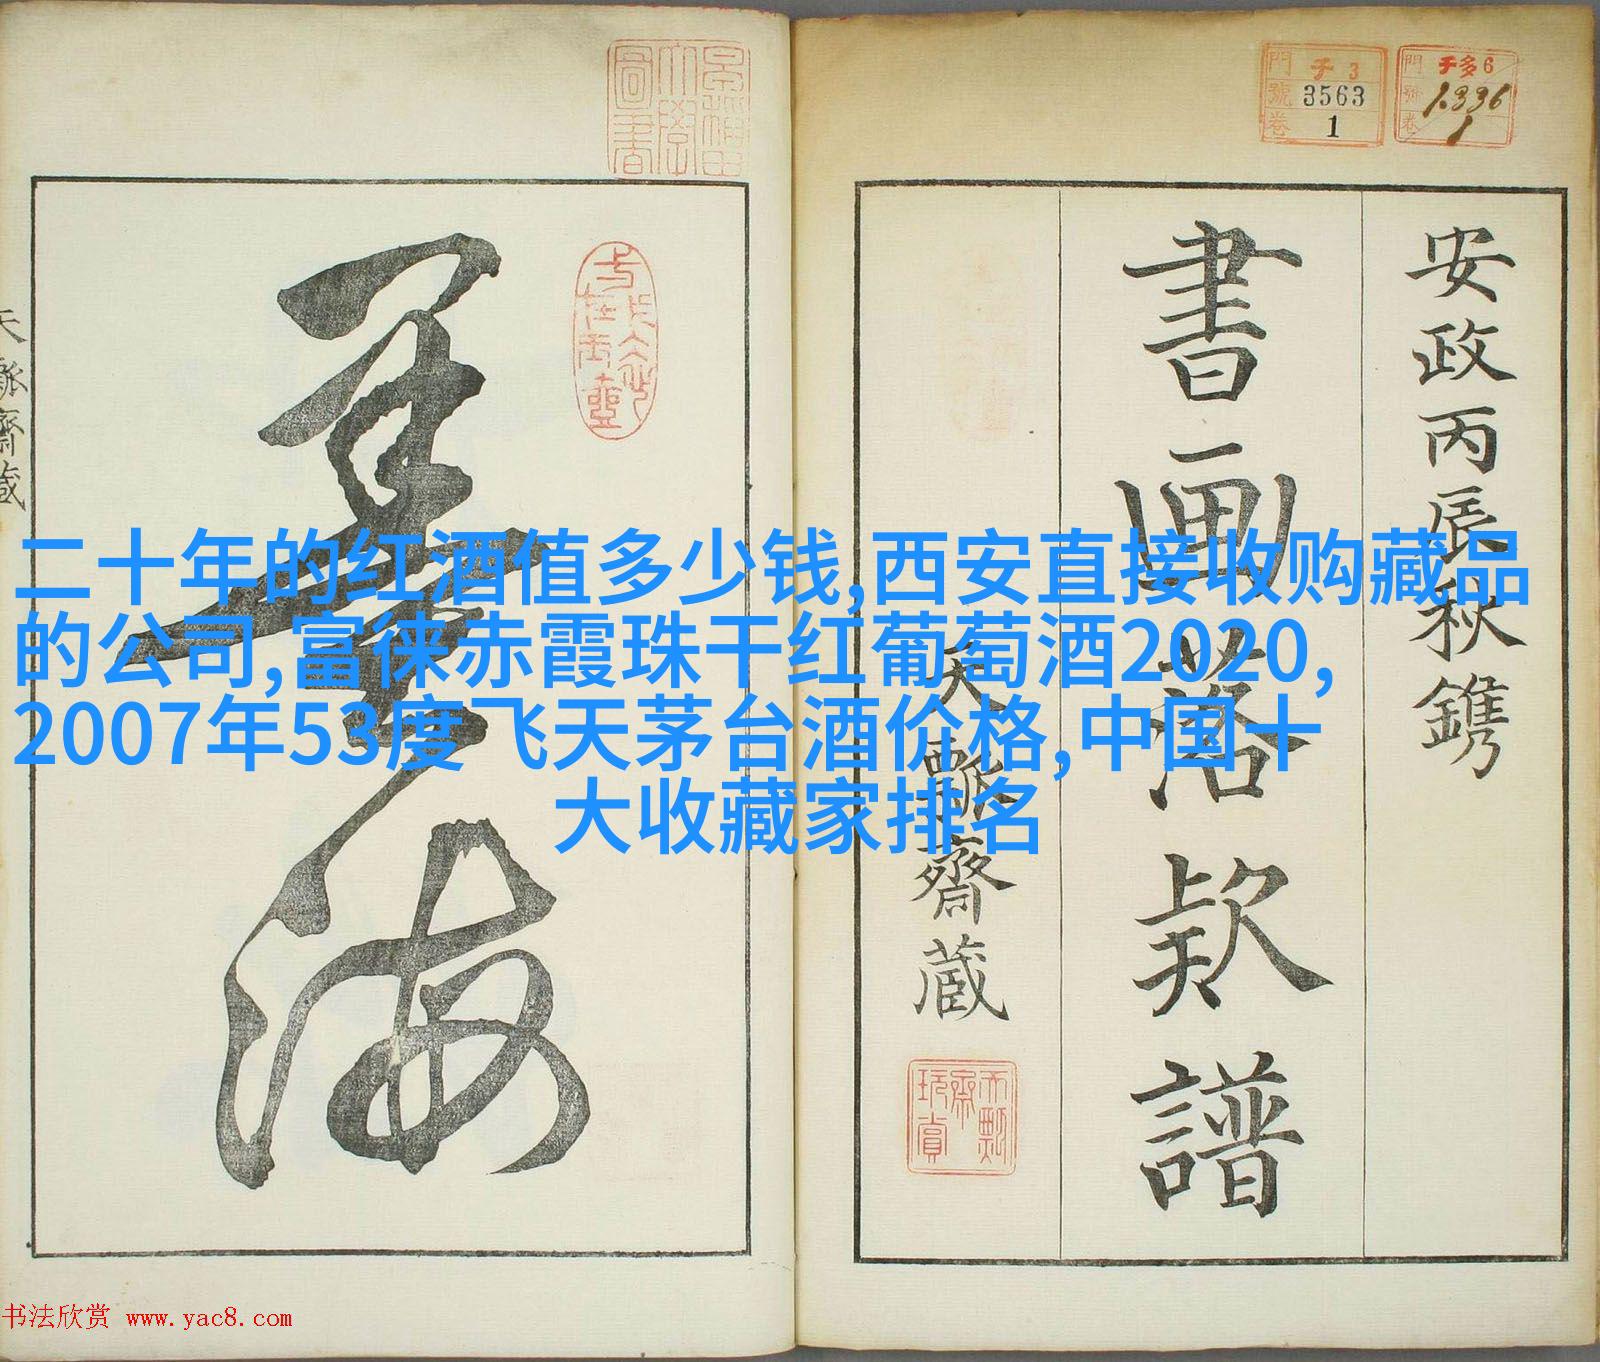 門 千 3
號 3563
卷 1
門 千多 6
號 1.336
卷 1
安政丙辰秋鐫
書画落款譜
天瓢齋蔵
墨海
二十年的红酒值多少钱,西安直接收购藏品
的公司,富徕赤霞珠干红葡萄酒2020,
2007年53度飞天茅台酒价格,中国十
大收藏家排名
书法欣赏 www.yac8.com